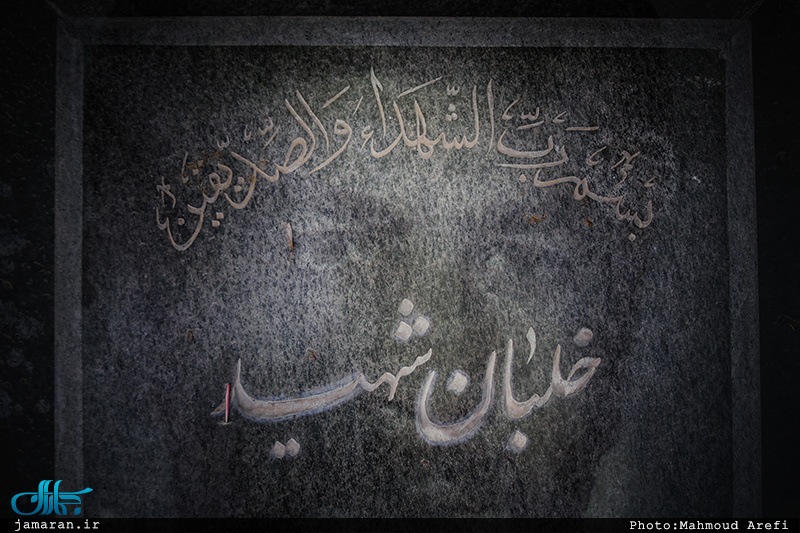 بسم رب الشّهداء والصّدیقین
خلبان شهید
جماران
jamaran.ir
Photo:Mahmoud Arefi